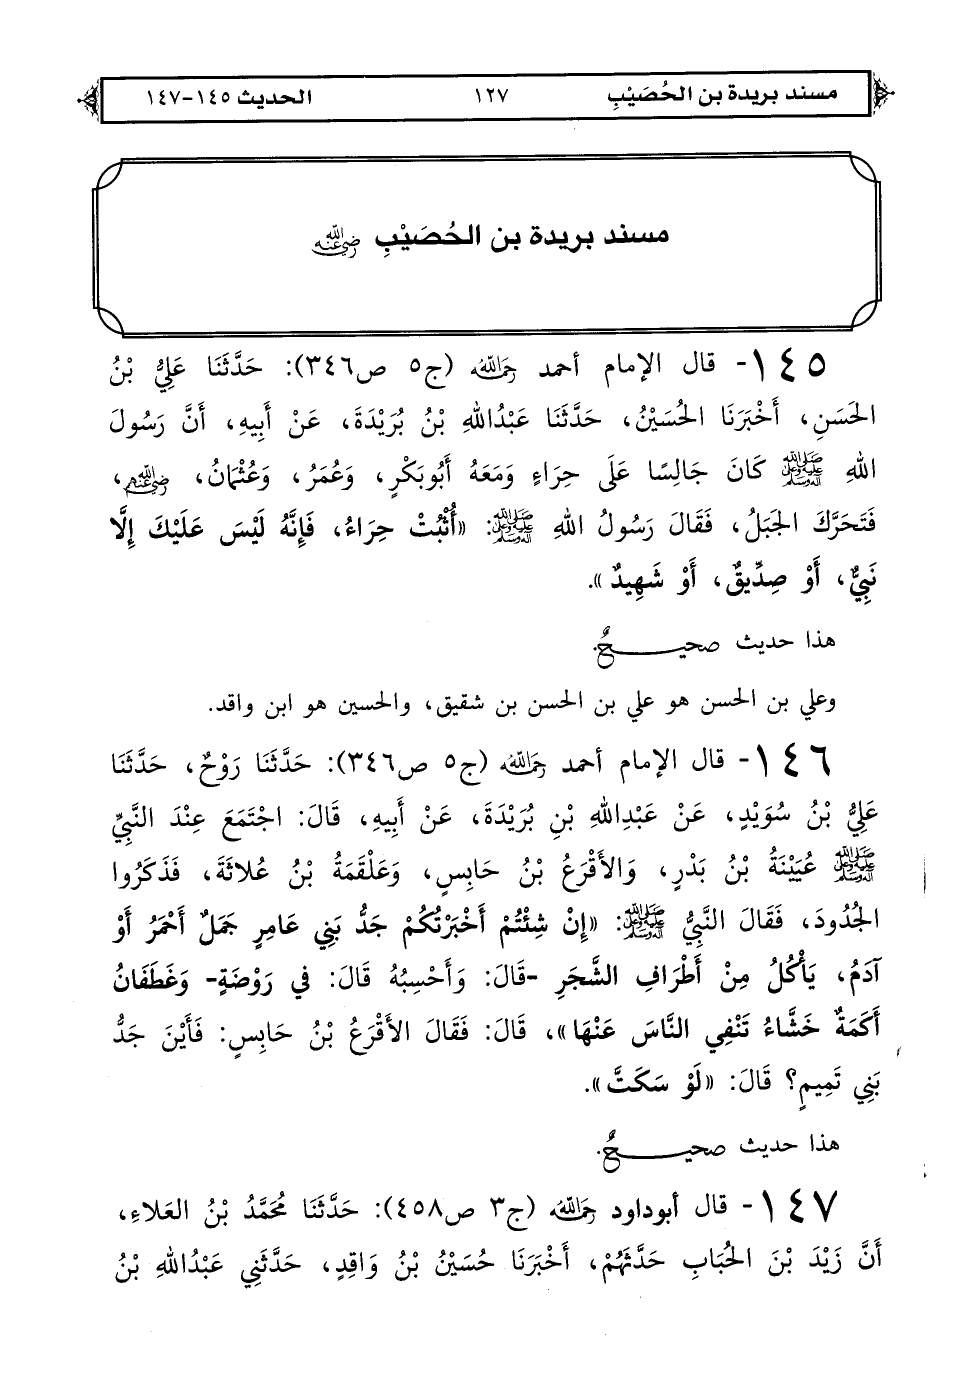 مسند بريدة بن الحُصَيْبِ ١٢٧ الحديث ١٤٥-١٤٧
مسند بريدة بن الحُصَيْبِ رضي الله عنه
١٤٥- قال الإمام أحمد رحمه الله (ج٥ ص٣٤٦): حَدَّثَنَا عَلِيُّ بْنُ
الحَسَنِ، أَخْبَرَنَا الحُسَيْنُ، حَدَّثَنَا عَبْدُاللهِ بْنُ بُرَيْدَةَ، عَنْ أَبِيهِ، أَنَّ رَسُولَ
اللهِ ﷺ كَانَ جَالِسًا عَلَى حِرَاءٍ وَمَعَهُ أَبُوبَكْرٍ، وَعُمَرُ، وَعُثْمَانُ، رضي الله عنهم،
فَتَحَرَّكَ الجَبَلُ، فَقَالَ رَسُولُ اللهِ ﷺ: «أُثْبُتْ حِرَاءُ، فَإِنَّهُ لَيْسَ عَلَيْكَ إِلَّا
نَبِيٌّ، أَوْ صِدِّيقٌ، أَوْ شَهِيدٌ».
هذا حديث صحيـــــحٌ.
وعلي بن الحسن هو علي بن الحسن بن شقيق، والحسين هو ابن واقد.
١٤٦- قال الإمام أحمد رحمه الله (ج٥ ص٣٤٦): حَدَّثَنَا رَوْحٌ، حَدَّثَنَا
عَلِيُّ بْنُ سُوَيْدٍ، عَنْ عَبْدِاللهِ بْنِ بُرَيْدَةَ، عَنْ أَبِيهِ، قَالَ: اجْتَمَعَ عِنْدَ النَّبِيِّ
ﷺ عُيَيْنَةُ بْنُ بَدْرٍ، وَالأَقْرَعُ بْنُ حَابِسٍ، وَعَلْقَمَةُ بْنُ عُلاثَةَ، فَذَكَرُوا
الجُدُودَ، فَقَالَ النَّبِيُّ ﷺ: «إِنْ شِئْتُمْ أَخْبَرْتُكُمْ جَدُّ بَنِي عَامِرٍ جَمَلٌ أَحْمَرُ أَوْ
آدَمُ، يَأْكُلُ مِنْ أَطْرَافِ الشَّجَرِ -قَالَ: وَأَحْسِبُهُ قَالَ: فِي رَوْضَةٍ- وَغَطَفَانُ
أَكَمَةٌ خَشَّاءُ تَنْفِي النَّاسَ عَنْهَا»، قَالَ: فَقَالَ الأَقْرَعُ بْنُ حَابِسٍ: فَأَيْنَ جَدُّ
بَنِي تَمِيمٍ؟ قَالَ: «لَوْ سَكَتَّ».
هذا حديث صحيـــــحٌ.
١٤٧- قال أبوداود رحمه الله (ج٣ ص٤٥٨): حَدَّثَنَا مُحَمَّدُ بْنُ العَلاءِ،
أَنَّ زَيْدَ بْنَ الحُبَابِ حَدَّثَهُمْ، أَخْبَرَنَا حُسَيْنُ بْنُ وَاقِدٍ، حَدَّثَنِي عَبْدُاللهِ بْنُ